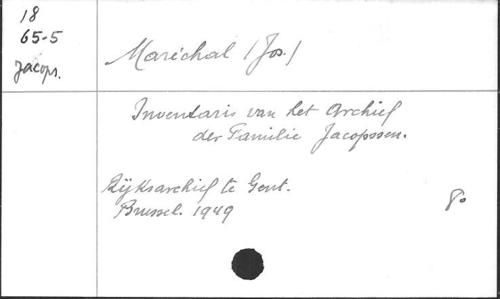 18
65-5
Jacops.
Maréchal (Jos.)
Inventaris van het Archief
der Familie Jacopssen.
Rijksarchief te Gent.
Brussel. 1949
8o